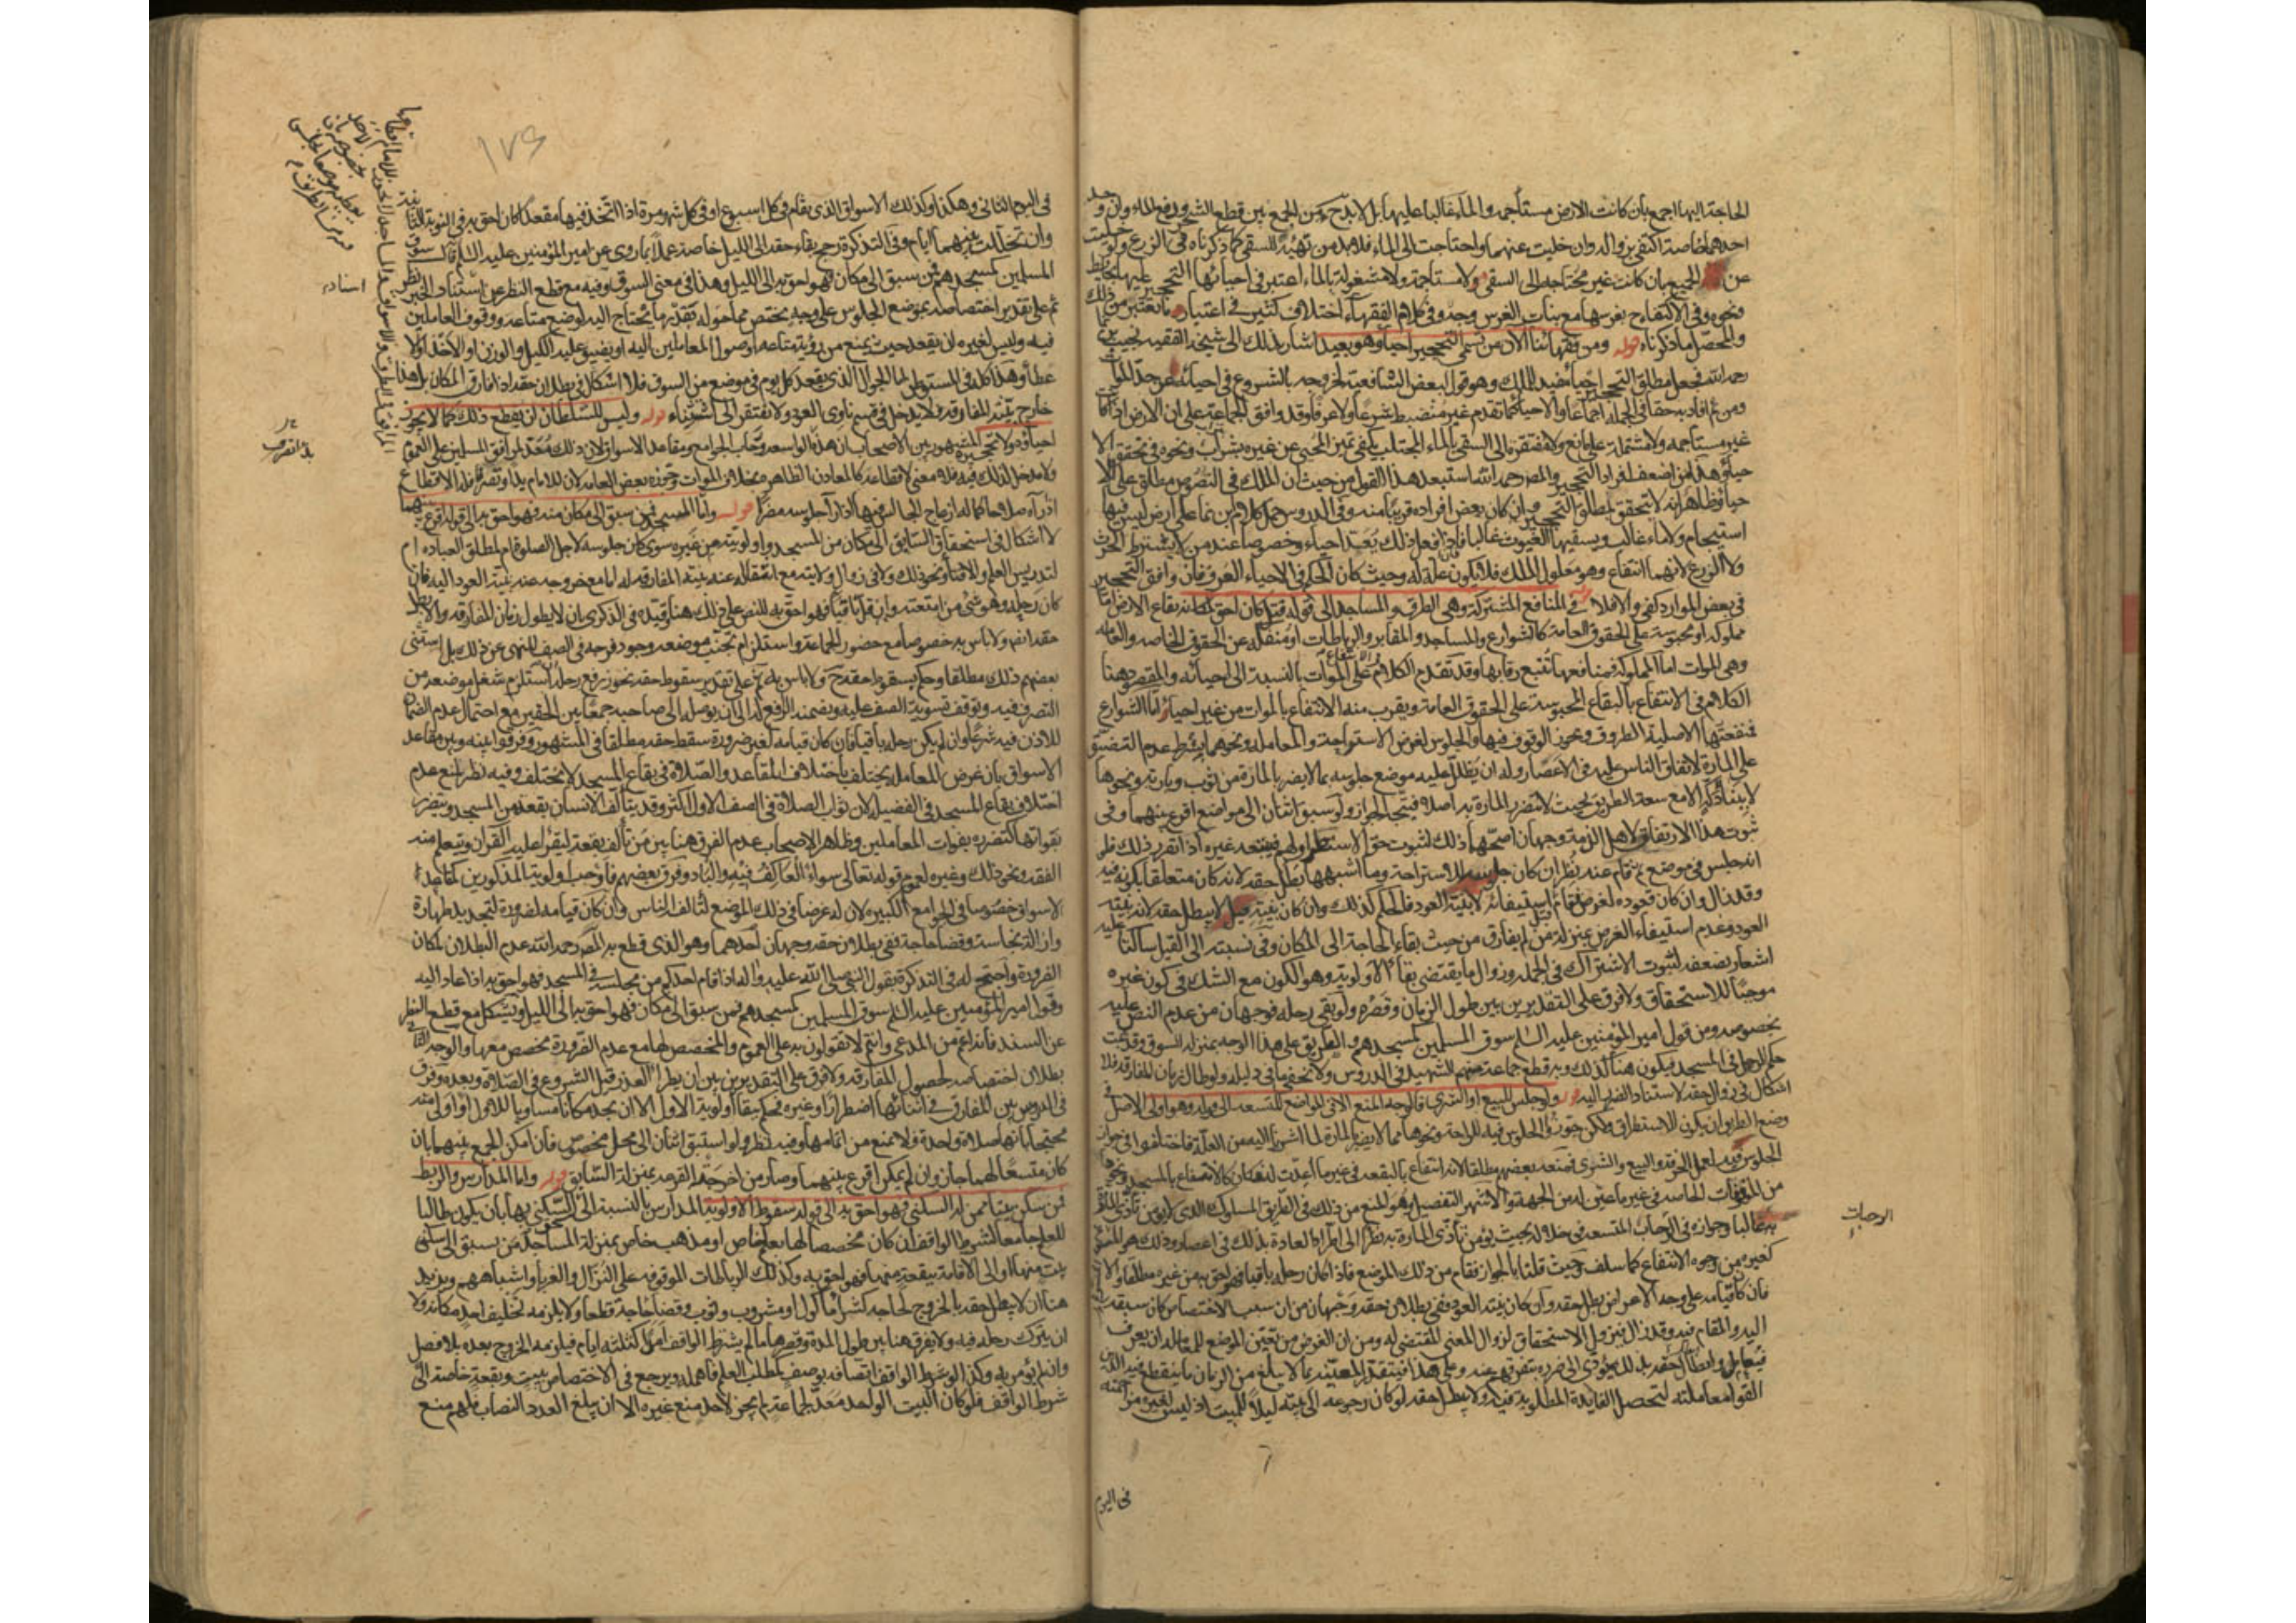 الحاجة اليها اجمع بأن كانت الارض مستأجمه والماء غالبا عليها بل لابد من الجمع بين قطع الشجر ودفع الماء وان
احدهما خاصة اكتفى بزواله وان خليت عنهما واحتاجت الى الماء فلابد من تهيئة للسقى كما ذكرناه فى الزرع ولو خليت
عن الجميع بان كانت غير محتاجه الى السقى ولا مستاجمة ولا مشغولة بالماء اعتبر فى احيائها التحجير عليها بحايط
ونحوه وفى الاكتفاء بغرسها مع بنات الغرس وجه وفى كلام الفقهاء اختلاف كثير فى اعتبار ما يعتبر من ذلك
والمحصل ما ذكرناه قوله ومن فقهائنا الآن من سمى التحجير احياء وهو بعيد اشار بذلك الى شيخه الفقيه نجيب
رحمه الله فجعل مطلق التحجير احياء يفيد الملك وهو قول لبعض الشافعية لخروجه بالشروع فى احيائه عن حد الموات
ومن ثم افاد به حقا فى الجملة اجماعا والاحياء كما تقدم غير منضبط شرعا ولا عرفا وقد وافق الجماعة على ان الارض اذا كانت
غير مستأجمه ولا مشتملة على مانع ولا مفتقرة الى السقى بالماء المجتلب يكفى تميز المحيى عن غيره بتراب ونحوه فى تحقق الا
حياء وهذا من اضعف افراد التحجير والمصر رحمه الله استبعد هذا القول من حيث ان الملك فى النصوص معلق على الا
حياء وظاهر انه لا يتحقق بمطلق التحجير وان كان بعض افراده قريبا منه وفى الدروس حمل كلام ابن نما على ارض ليس فيها
استيجام ولا ماء غالب ويسقيها الغيوث غالبا فان فعل ذلك يعد احياء وخصوصا عند من لا يشترط الحرث
ولا الزرع لانهما انتفاع وهو معلول الملك فلا يكون علة له وحيث كان الحكم فى الاحياء العرف فان وافق التحجير
فى بعض الموارد كفى والا فلا قوله فى المنافع المشتركة وهى الطرق والمساجد الى قوله قيل كان احق بمكانه بقاع الارض اما
مملوكة او محبوسة على الحقوق العامة كالشوارع والمساجد والمقابر والرباطات او منفكة عن الحقوق الخاصه والعامه
وهى الموات اما المملوكة فمنافعها تتبع رقابها وقد تقدم الكلام على الموات بالنسبة الى احيائه والمقصود هنا
الكلام فى الانتفاع بالبقاع المحبوسة على الحقوق العامة ويقرب منه الانتفاع بالموات من غير احياء اما الشوارع
فمنفعتها الاصلية الطروق ويجوز الوقوف فيها والجلوس لغرض الاستراحة والمعاملة ونحوهما بشرط عدم التضيق
على المارة لاتفاق الناس عليه فى الاعصار وله ان يظلل عليه موضع جلوسه بما لا يضر بالمارة من ثوب وبارية ونحوها
لا ببناء دكة الا مع سعة الطريق بحيث لا تتضرر المارة به اصلا فيتجه الجواز ولو سبق اثنان الى مواضع اقرع بينهما وفى
ثبوت هذا الارتفاق لاهل الذمة وجهان اصحهما ذلك لثبوت حق الاستطراق لهم فيتبعه غيره اذا تقرر ذلك فلو
انه جلس فى موضع ثم قام عنه نظر ان كان جلوسه للاستراحة وما اشبهها بطل حقه لانه كان متعلقا بكونه فيه
وقد زال وان كان قعوده لغرض فقام قبل استيفائه لا بنية العود فالحكم كذلك وان كان بنيته قيل لا يبطل حقه لانه بنية
العود وعدم استيفاء الغرض بمنزلة من لم يفارق من حيث بقاء الحاجة الى المكان وفى نسبته الى القيل ساكتا عليه
اشعار بضعفه لثبوت الاشتراك فى الجملة وزوال ما يقتضى بقاء الاولوية وهو الكون مع الشك فى كون غيره
موجبا للاستحقاق ولا فرق على التقديرين بين طول الزمان وقصره ولو بقى رحله فوجهان من عدم النص عليه
بخصوصه ومن قول امير المؤمنين عليه السلم سوق المسلمين كمسجدهم والطريق على هذا الوجه بمنزلة السوق وقد ثبت
حكم الرحل فى المسجد فيكون هنا كذلك وبه قطع جماعة منهم الشهيد فى الدروس ولا يخفى ما فى دليله ولو طال زمان المفارقة فلا
اشكال فى زوال حقه لاستناد الضرر اليه قوله ولو جلس للبيع او الشرى فالوجه المنع الا فى المواضع المتسعه الى قوله وهو اولى الاصل فى
وضع الطريق ان يكون للاستطراق ولكن جوز الجلوس فيه للراحة ونحوها مما لا يضر بالمارة لما اشرنا اليه من العلة فاختلفوا فى جواز
الجلوس فيه لعمل الحرفه والبيع والشرى فمنعه بعضهم مطلقا لانه انتفاع بالبقعة فى غير ما اعدت له فكان كالانتفاع بالمسجد ونحوه
من الموقوفات الخاصه فى غير ما عين له من الجهة والاشهر التفصيل وهو المنع من ذلك فى الطريق المسلوك الذى لا يؤمن تأذى المارة
به غالبا وجوازه فى الرحاب المتسعه فى خلاله بحيث يؤمن تأذى المارة به نظرا الى اطراد العادة بذلك فى اعصار وذلك هو المسوغ
كغيره من وجوه الانتفاع كما سلف وحيث قلنا بالجواز فقام من ذلك الموضع فاذا كان رحله باقيا فهو احق به من غيره مطلقا والا
فان كان قيامه على وجه الاعراض بطل حقه وان كان بنية العود ففى بطلان حقه وجهان من ان سبب الاختصاص كان سبقه
اليه والمقام فيه وقد زال فيزول الاستحقاق لزوال المعنى المقتضى له ومن ان الغرض من تعيين الموضع للمعاملة ان يعرف
فيعامل وابطال حقه بذلك يؤدى الى ضرره بتفرقهم عنه وعلى هذا فيتقدر المعيشة بما لا يبلغ من الزمان ما ينقطع فيه الذين
القوا معاملته لتحصل الفايدة المطلوبه فيه ولا يبطل حقه لو كان رجوعه الى بيته ليلا للمبيت اذ ليس لغيره مزاحمته
فى اليوم
الرحبات
١٧٩
فى اليوم الثانى وهكذا وكذلك الاسواق الذى يقام فى كل اسبوع او فى كل شهر مرة اذا اتخذ فيها مقعدا كان احق به فى النوبة الثانية
وان تخللت بينهما ايام وفى التذكرة رجح بقاء حقه الى الليل خاصة عملا بما روى عن امير المؤمنين عليه السلم قال سوق
المسلمين كمسجدهم فمن سبق الى مكان فهو احق به الى الليل وهذا فى معنى السوق وفيه مع قطع النظر عن استناد الخبر نظر
ثم على تقدير اختصاصه بموضع الجلوس على وجه يختص مما حوله بقدر ما يحتاج اليه لوضع متاعه ووقوف العاملين
فيه وليس لغيره ان يقعد حيث يمنع من رؤية متاعه او صول المعاملين اليه او يضيق عليه الكيل والوزن والاخذ والا
عطاء وهذا كله فى المستوطن اما الجوال الذى يقعد كل يوم فى موضع من السوق فلا اشكال فى بطلان حقه اذا فارق المكان بل هذا
خارج بنية المفارقه فلا يدخل فى قسم ناوى العود ولا يفتقر الى استثناء قوله وليس للسلطان ان يقطع ذلك كما لا يجوز
احياؤه ولا تحجيره المشهور بين الاصحاب ان هذه الواسعه ورحاب الجوامع ومقاعد الاسواق لان ذلك معد لمرافق المسلمين على العموم
ولا مدخل لذلك فيه فلا معنى لاقطاعه كالمعادن الظاهره بخلاف الموات وجوزه بعض العامه لان للامام يدا وتصرفا فله الاقطاع
اذا رآه صلاحا كما له ازعاج الجالس فيها اذا رآى جلوسه مضرا قوله واما المسجد فمن سبق الى مكان منه فهو احق به الى قوله اقرع بينهما
لا اشكال فى استحقاق السابق الى مكان من المسجد واولويته من غيره سوى كان جلوسه لاجل الصلوة ام لمطلق العباده ام
لتدريس العلم والافتاء ونحو ذلك ولا فى زوال ولايته مع انتقاله عنه بنية المفارقه له اما مع خروجه عنه بنية العود اليه فان
كان رحله وهو شئ من امتعته وان قل باقيا فهو احق به للنص على ذلك هنا وقيده فى الذكرى ان لا يطول زمان المفارقه والا بطل
حقه ايضا ولا باس به خصوصا مع حضور الجماعة واستلزام تجنب موضعه وجود فرجه فى الصف للنهى عن ذلك بل استثنى
بعضهم ذلك مطلقا وحكم بسقوط حقه ح ولا باس به ثم على تقدير سقوط حقه يجوز رفع رحله ان استلزم شغل موضعه من
التصرف فيه وتوقف تسوية الصف عليه ويضمنه الرافع له الى ان يوصله الى صاحبه جمعا بين الحقين مع احتمال عدم الضمان
للاذن فيه شرعا وان لم يكن رحله باقيا فان كان قيامه لغير ضرورة سقط حقه مطلقا فى المشهور وفرقوا بينه وبين مقاعد
الاسواق بان غرض المعاملة يختلف باختلاف المقاعد والصلاة فى بقاع المسجد لا تختلف وفيه نظر لمنع عدم
اختلاف بقاع المسجد فى الفضيله لان ثواب الصلاة فى الصف الاول اكثر وقد يتألف الانسان بقعة من المسجد ويتضرر
بفواتها كتضرره بفوات المعاملين وظاهر الاصحاب عدم الفرق هنا بين من تألف بقعة ليقرأ عليه القرآن ويتعلم منه
الفقه ونحو ذلك وغيره لعموم قوله تعالى سواء العاكف فيه والباد وفرق بعضهم فاوجب اولوية المذكورين كمقاعد
الاسواق خصوصا فى الجوامع الكبيره لان له غرضا فى ذلك الموضع لتألف الناس وان كان قيامه لضرورة لتجديد طهارة
وازالة نجاسة وقضاء حاجة ففى بطلان حقه وجهان احدهما وهو الذى قطع به المصر رحمه الله عدم البطلان لمكان
الضرورة واحتج له فى التذكرة بقول النبى صلى الله عليه واله اذا قام احدكم من مجلسه فى المسجد فهو احق به اذا عاد اليه
وقول امير المؤمنين عليه السلم سوق المسلمين كمسجدهم فمن سبق الى مكان فهو احق به الى الليل ويشكل مع قطع النظر
عن السند فانه اعم من المدعى وانتم لا تقولون به على العموم والمخصص لها مع عدم الضرورة يخصص معها والوجه الثانى
بطلان اختصاصه لحصول المفارقه ولا فرق على التقديرين بين ان يطرأ العذر قبل الشروع فى الصلاة وبعده وفرق
فى الدروس بين المفارق فى اثنائها اضطرارا وغيره فحكم ببقاء اولوية الاول الا ان يجد مكانا مساويا للاول او اولى منه
محتجا بانها صلاة واحدة ولا يمنع من اتمامها وفيه نظر ولو استبق اثنان الى محل مخصوص فان امكن الجمع بينهما بان
كان متسعا لهما جاز وان لم يمكن اقرع بينهما وصار من اخرجته القرعه بمنزلة السابق قوله واما المدارس والربط
فمن سكن بيتا ممن له السكنى فهو احق به الى قوله سقوط الاولوية المدارس بالنسبة الى مستحق السكنى بها بان يكون طالبا
للعلم جامعا لشرط الواقف ان كان مخصصا لها بعلم خاص او مذهب خاص بمنزلة المساجد فمن يسبق الى سكنى
بيت منها او الى الاقامة ببقعة منها فهو احق به وكذلك الرباطات الموقوفه على النزال والغرباء واشباههم ويزيد
هنا ان لا يبطل حقه بالخروج لحاجه كشراء مأكول او مشروب وثوب وقضاء حاجة قطعا ولا يلزمه تخليف احد مكانه ولا
ان يترك رحله فيه ولا يفرق هنا بين طول المدة وقصرها ما لم يشترط الواقف امدا كثلثة ايام فيلزمه الخروج بعده بلا فصل
وان لم يؤمر به وكذا لو شرط الواقف اتصافه بوصف كطلب العلم فاهمله ويرجع فى الاختصاص ببيت وبقعة خاصة الى
شرط الواقف فلو كان البيت الواحد معدا لجماعة لم يجز لاحد منع غيره الا ان يبلغ العدد النصاب فلهم منع
اسناد